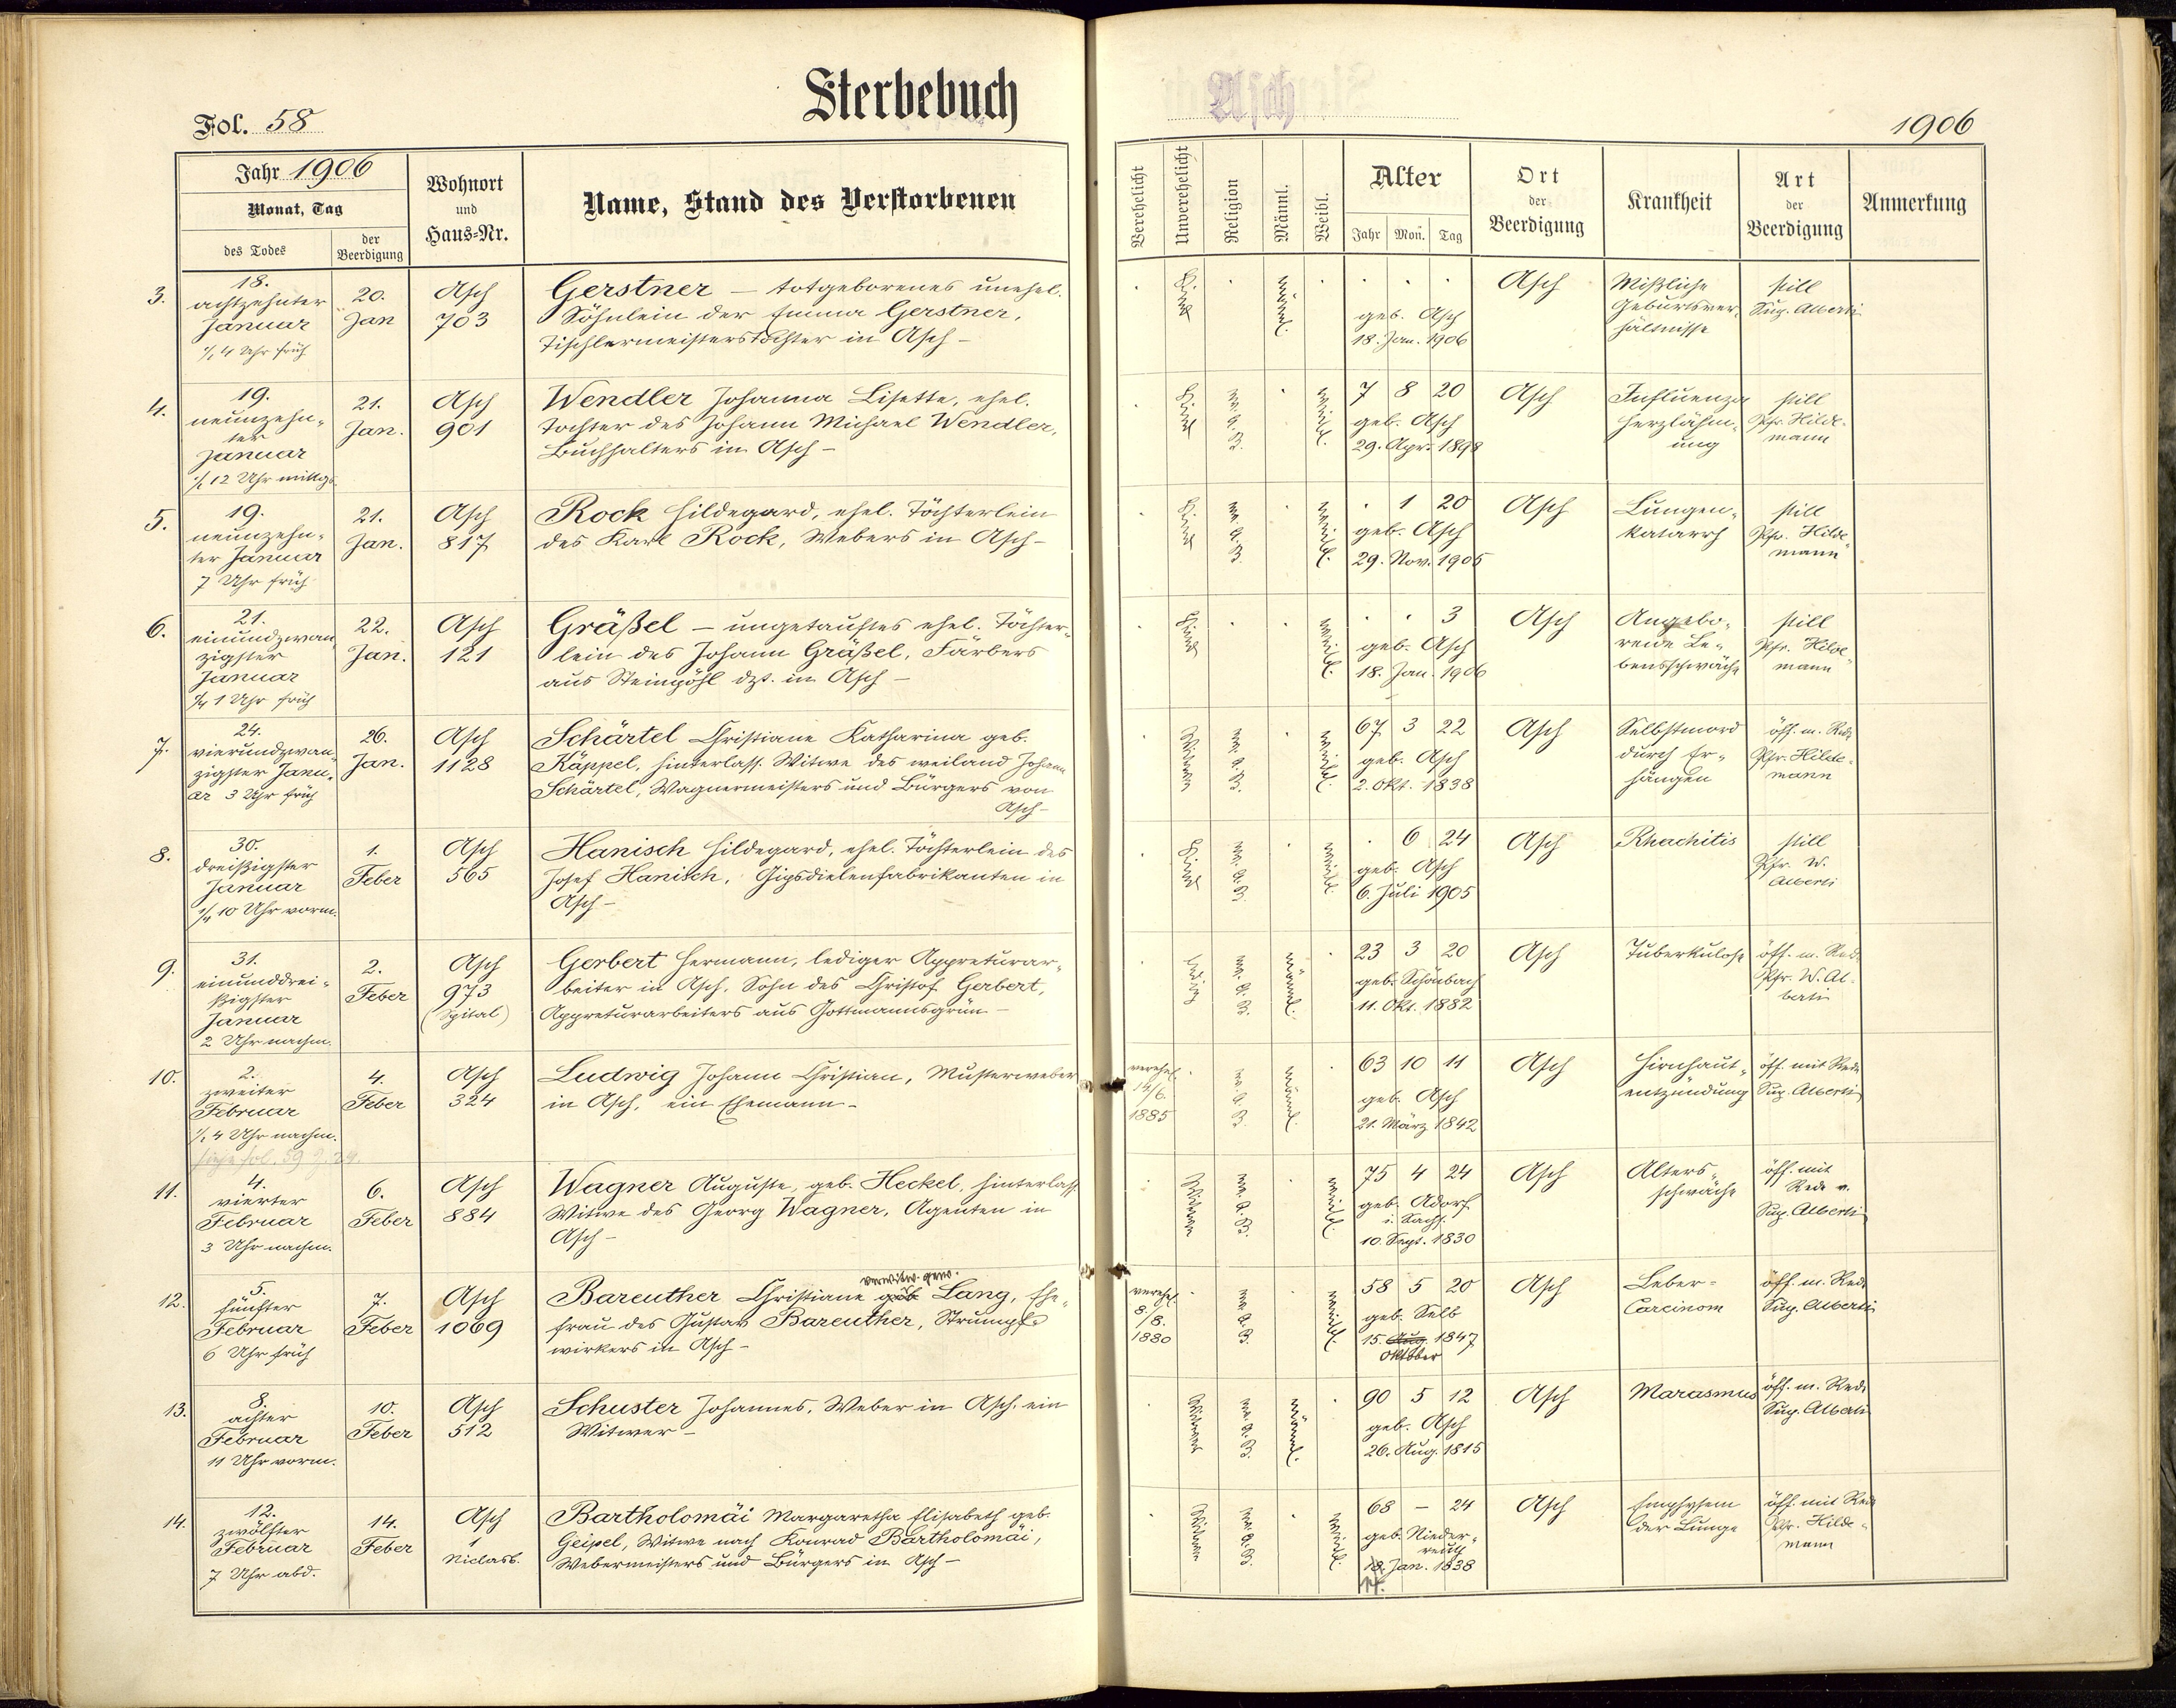 Sterbebuch
Asch
Fol. 58
1906
Jahr 1906
Monat, Tag
des Todes
der
Beerdigung
Wohnort
und
Haus-Nr.
Name, Stand des Verstorbenen
Verehelicht
Unverehelicht
Religion
Männl.
Weibl.
Alter
Jahr Mon. Tag
Ort
der
Beerdigung
Krankheit
Art
der
Beerdigung
Anmerkung
3.
18.
achtzehnter
Januar
4 Uhr früh
20.
Jan
Asch
703
Gerstner – totgeborenes unehel.
Söhnlein der Emma Gerstner,
Tischlermeisterstochter in Asch –
Kind
männl.
geb. Asch
18. Jan. 1906
Asch
Mißliche
Geburtsver-
hältnisse
still
Sup. Alberti
4.
19.
neunzehn-
ter
Januar
½ 12 Uhr mittgs.
21.
Jan.
Asch
901
Wendler Johanna Lisette, ehel.
Tochter des Johann Michael Wendler,
Buchhalters in Asch –
Kind
ev. A. B.
weibl.
7 8 20
geb. Asch
29. Apr. 1898
Asch
Influenza
Herzlähm-
ung
still
Pfr. Hilde-
mann
5.
19.
neunzehn-
ter Januar
7 Uhr früh
21.
Jan.
Asch
817
Rock Hildegard, ehel. Töchterlein
des Karl Rock, Webers in Asch –
Kind
ev. A. B.
weibl.
1 20
geb. Asch
29. Nov. 1905
Asch
Lungen-
katarrh
still
Pfr. Hilde-
mann
6.
21.
einundzwan-
zigster
Januar
¼ 1 Uhr früh
22.
Jan.
Asch
121
Gräßel – ungetauftes ehel. Töchter-
lein des Johann Gräßel, Färbers
aus Steinpöhl dzt. in Asch –
Kind
weibl.
3
geb. Asch
18. Jan. 1906
Asch
Angebo-
rene Le-
bensschwäche
still
Pfr. Hilde-
mann
7.
24.
vierundzwan-
zigster Janu-
ar 3 Uhr früh
26.
Jan.
Asch
1128
Schärtel Christiane Katharina geb.
Käppel, hinterlass. Witwe des weiland Johann
Schärtel, Wagnermeisters und Bürgers von
Asch –
Witwe
ev. A. B.
weibl.
67 3 22
geb. Asch
2. Okt. 1838
Asch
Selbstmord
durch Er-
hängen
öff. m. Rede
Pfr. Hilde-
mann
8.
30.
dreißigster
Januar
¼ 10 Uhr vorm.
1.
Feber
Asch
565
Hanisch Hildegard, ehel. Töchterlein des
Josef Hanisch, Gipsdielenfabrikanten in
Asch –
Kind
ev. A. B.
weibl.
6 24
geb. Asch
6. Juli 1905
Asch
Rhachitis
still
Pfr. W.
Alberti
9.
31.
einunddrei-
ßigster
Januar
2 Uhr nachm.
2.
Feber
Asch
973
(Spital)
Gerbert Hermann, lediger Appreturar-
beiter in Asch, Sohn des Christof Gerbert,
Appreturarbeiters aus Gottmannsgrün –
ledig
ev. A. B.
männl.
23 3 20
geb. Schönbach
11. Okt. 1882
Asch
Tuberkulose
öff. m. Rede
Pfr. W. Al-
berti
10.
2.
zweiter
Februar
½ 4 Uhr nachm.
siehe fol. 59 Z. 24.
4.
Feber
Asch
324
Ludwig Johann Christian, Musterweber
in Asch, ein Ehemann –
verehel.
14/6.
1885
ev. A. B.
männl.
63 10 11
geb. Asch
21. März 1842
Asch
Hirnhaut-
entzündung
öff. mit Rede
Sup. Alberti
11.
4.
vierter
Februar
3 Uhr nachm.
6.
Feber
Asch
884
Wagner Auguste, geb. Heckel, hinterlass.
Witwe des Georg Wagner, Agenten in
Asch –
Witwe
ev. A. B.
weibl.
75 4 24
geb. Adorf
i. Sachs.
10. Sept. 1830
Asch
Alters-
schwäche
öff. mit
Rede v.
Sup. Alberti
12.
5.
fünfter
Februar
6 Uhr früh
7.
Feber
Asch
1069
verwitw. gew.
Bareuther Christiane geb. Lang, Ehe-
frau des Gustav Bareuther, Strumpf-
wirkers in Asch –
verehel.
8./8.
1880
ev. A. B.
weibl.
58 5 20
geb. Selb
15. Aug. 1847
Oktober
Asch
Leber-
Carcinom
öff. m. Rede
Sup. Alberti
13.
8.
achter
Februar
11 Uhr vorm.
10.
Feber
Asch
512
Schuster Johannes, Weber in Asch, ein
Witwer –
Witwer
ev. A. B.
männl.
90 5 12
geb. Asch
26. Aug. 1815
Asch
Marasmus
öff. m. Rede
Sup. Alberti
14.
12.
zwölfter
Februar
7 Uhr abd.
14.
Feber
Asch
1
Niclasb.
Bartholomäi Margaretha Elisabeth geb.
Geipel, Witwe nach Konrad Bartholomäi,
Webermeisters und Bürgers in Asch –
Witwe
ev. A. B.
weibl.
68 – 24
geb. Nieder-
reuth
18. Jan. 1838
Asch
Emphysem
der Lunge
öff. mit Rede
Pfr. Hilde-
mann